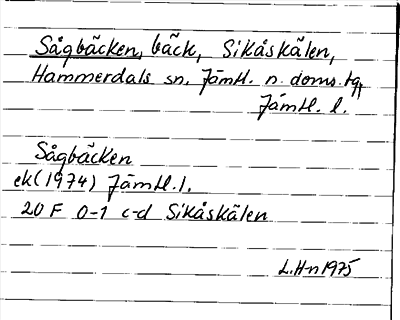 Sågbäcken, bäck, Sikåskälen,
Hammerdals sn. Jämtl. n. doms. tg,
Jämtl. l.
Sågbäcken
ek (1974) Jämtl. l.
20 F 0-1 c-d Sikåskälen
L.H-n 1975